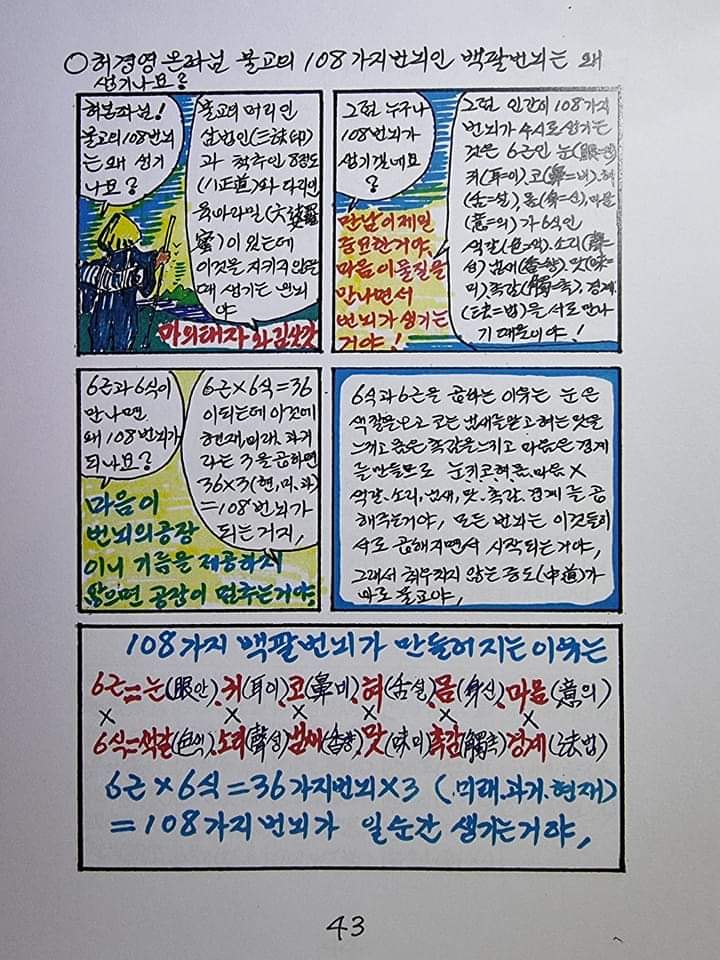 ○허경영 본좌님 불교의 108가지번뇌인 백팔번뇌는 왜
생기나요?
허본좌님!
불교의108번뇌
는 왜 생기
나요?
불교의 머리인
삼법인(三法印)
과 척추인 8정도
(八正道)와 다리인
육바라밀(六婆羅
蜜)이 있는데
이것을 지키지 않을
때 생기는 번뇌
야
마의태자와 김삿갓
그럼 누구나
108번뇌가
생기겠네요
?
만남이 제일
중요한거야.
마음이 물질을
만나면서
번뇌가 생기는
거야!
그럼 인간이 108가지
번뇌가 수시로 생기는
것은 6근인 눈(眼=안)
귀(耳=이), 코(鼻=비), 혀
(舌=설), 몸(身=신), 마음
(意=의)가 6식인
색깔(色=색), 소리(聲=
성) 냄새(香=향), 맛(味=
미), 촉감(觸=촉), 경계
(法=법)을 서로 만나
기 때문이야!
6근과 6식이
만나면
왜 108번뇌가
되나요?
6근×6식=36
이되는데 이것에
현재, 미래, 과거
라는 3을 곱하면
36×3(현,미,과)
=108번뇌가
되는거지,
마음이
번뇌의공장
이니 기름을 제공하지
않으면 공장이 멈추는거야,
6식과 6근을 곱하는 이유는 눈은
색깔을 보고 코는 냄새를 맡고 혀는 맛을
느끼고 몸은 촉감을느끼고 마음은 경계
를 만들므로 눈,귀,코,혀,몸,마음 ×
색깔, 소리, 냄새, 맛, 촉감, 경계를 곱
해주는거야, 모든 번뇌는 이것들이
서로 곱해지면서 시작되는거야,
그래서 치우치지 않는 중도(中道)가
바로 불교야,
108가지 백팔번뇌가 만들어지는 이유는
6근=눈(眼안), 귀(耳이), 코(鼻비), 혀(舌설), 몸(身신), 마음(意의)
× × × × ×
6식=색깔(色색), 소리(聲성) 냄새(香향), 맛(味미) 촉감(觸촉) 경계(法법)
6근×6식=36가지번뇌×3 (미래.과거.현재)
=108가지 번뇌가 일순간 생기는거야,
43